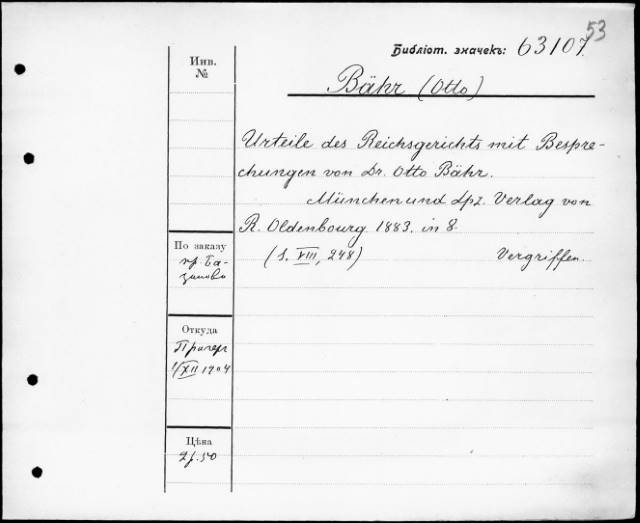 53
Библіот. значекъ: 63107.
Инв.
№
Bähr (Otto)
Urteile des Reichsgerichts mit Bespre-
chungen von Dr. Otto Bähr.
München und Lpz. Verlag von
R. Oldenbourg 1883. in 8.
(S. VIII, 248) Vergriffen.
По заказу
пр.
Откуда
Прагеръ
1/XII 1904
Цѣна
2 f. 50